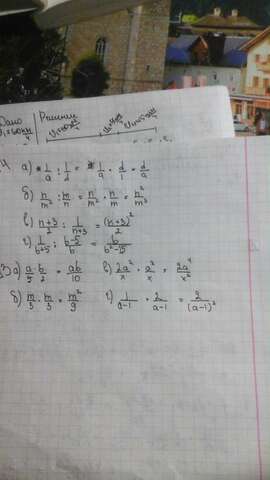 Дано
Решени
а) 1/a : 1/d = 1/a · d/1 = d/a
б) n/m² : m/n = n/m² · n/m = n²/m³
в) n+3/2 : 1/n+3 = (n+3)²/2
г) 1/b+5 : b-5/b = b/b²-25
а) a/5 · b/2 = ab/10
в) 2a²/x · a²/x = 2a⁴/x²
б) m/3 · m/3 = m²/9
г) 1/a-1 · 2/a-1 = 2/(a-1)²